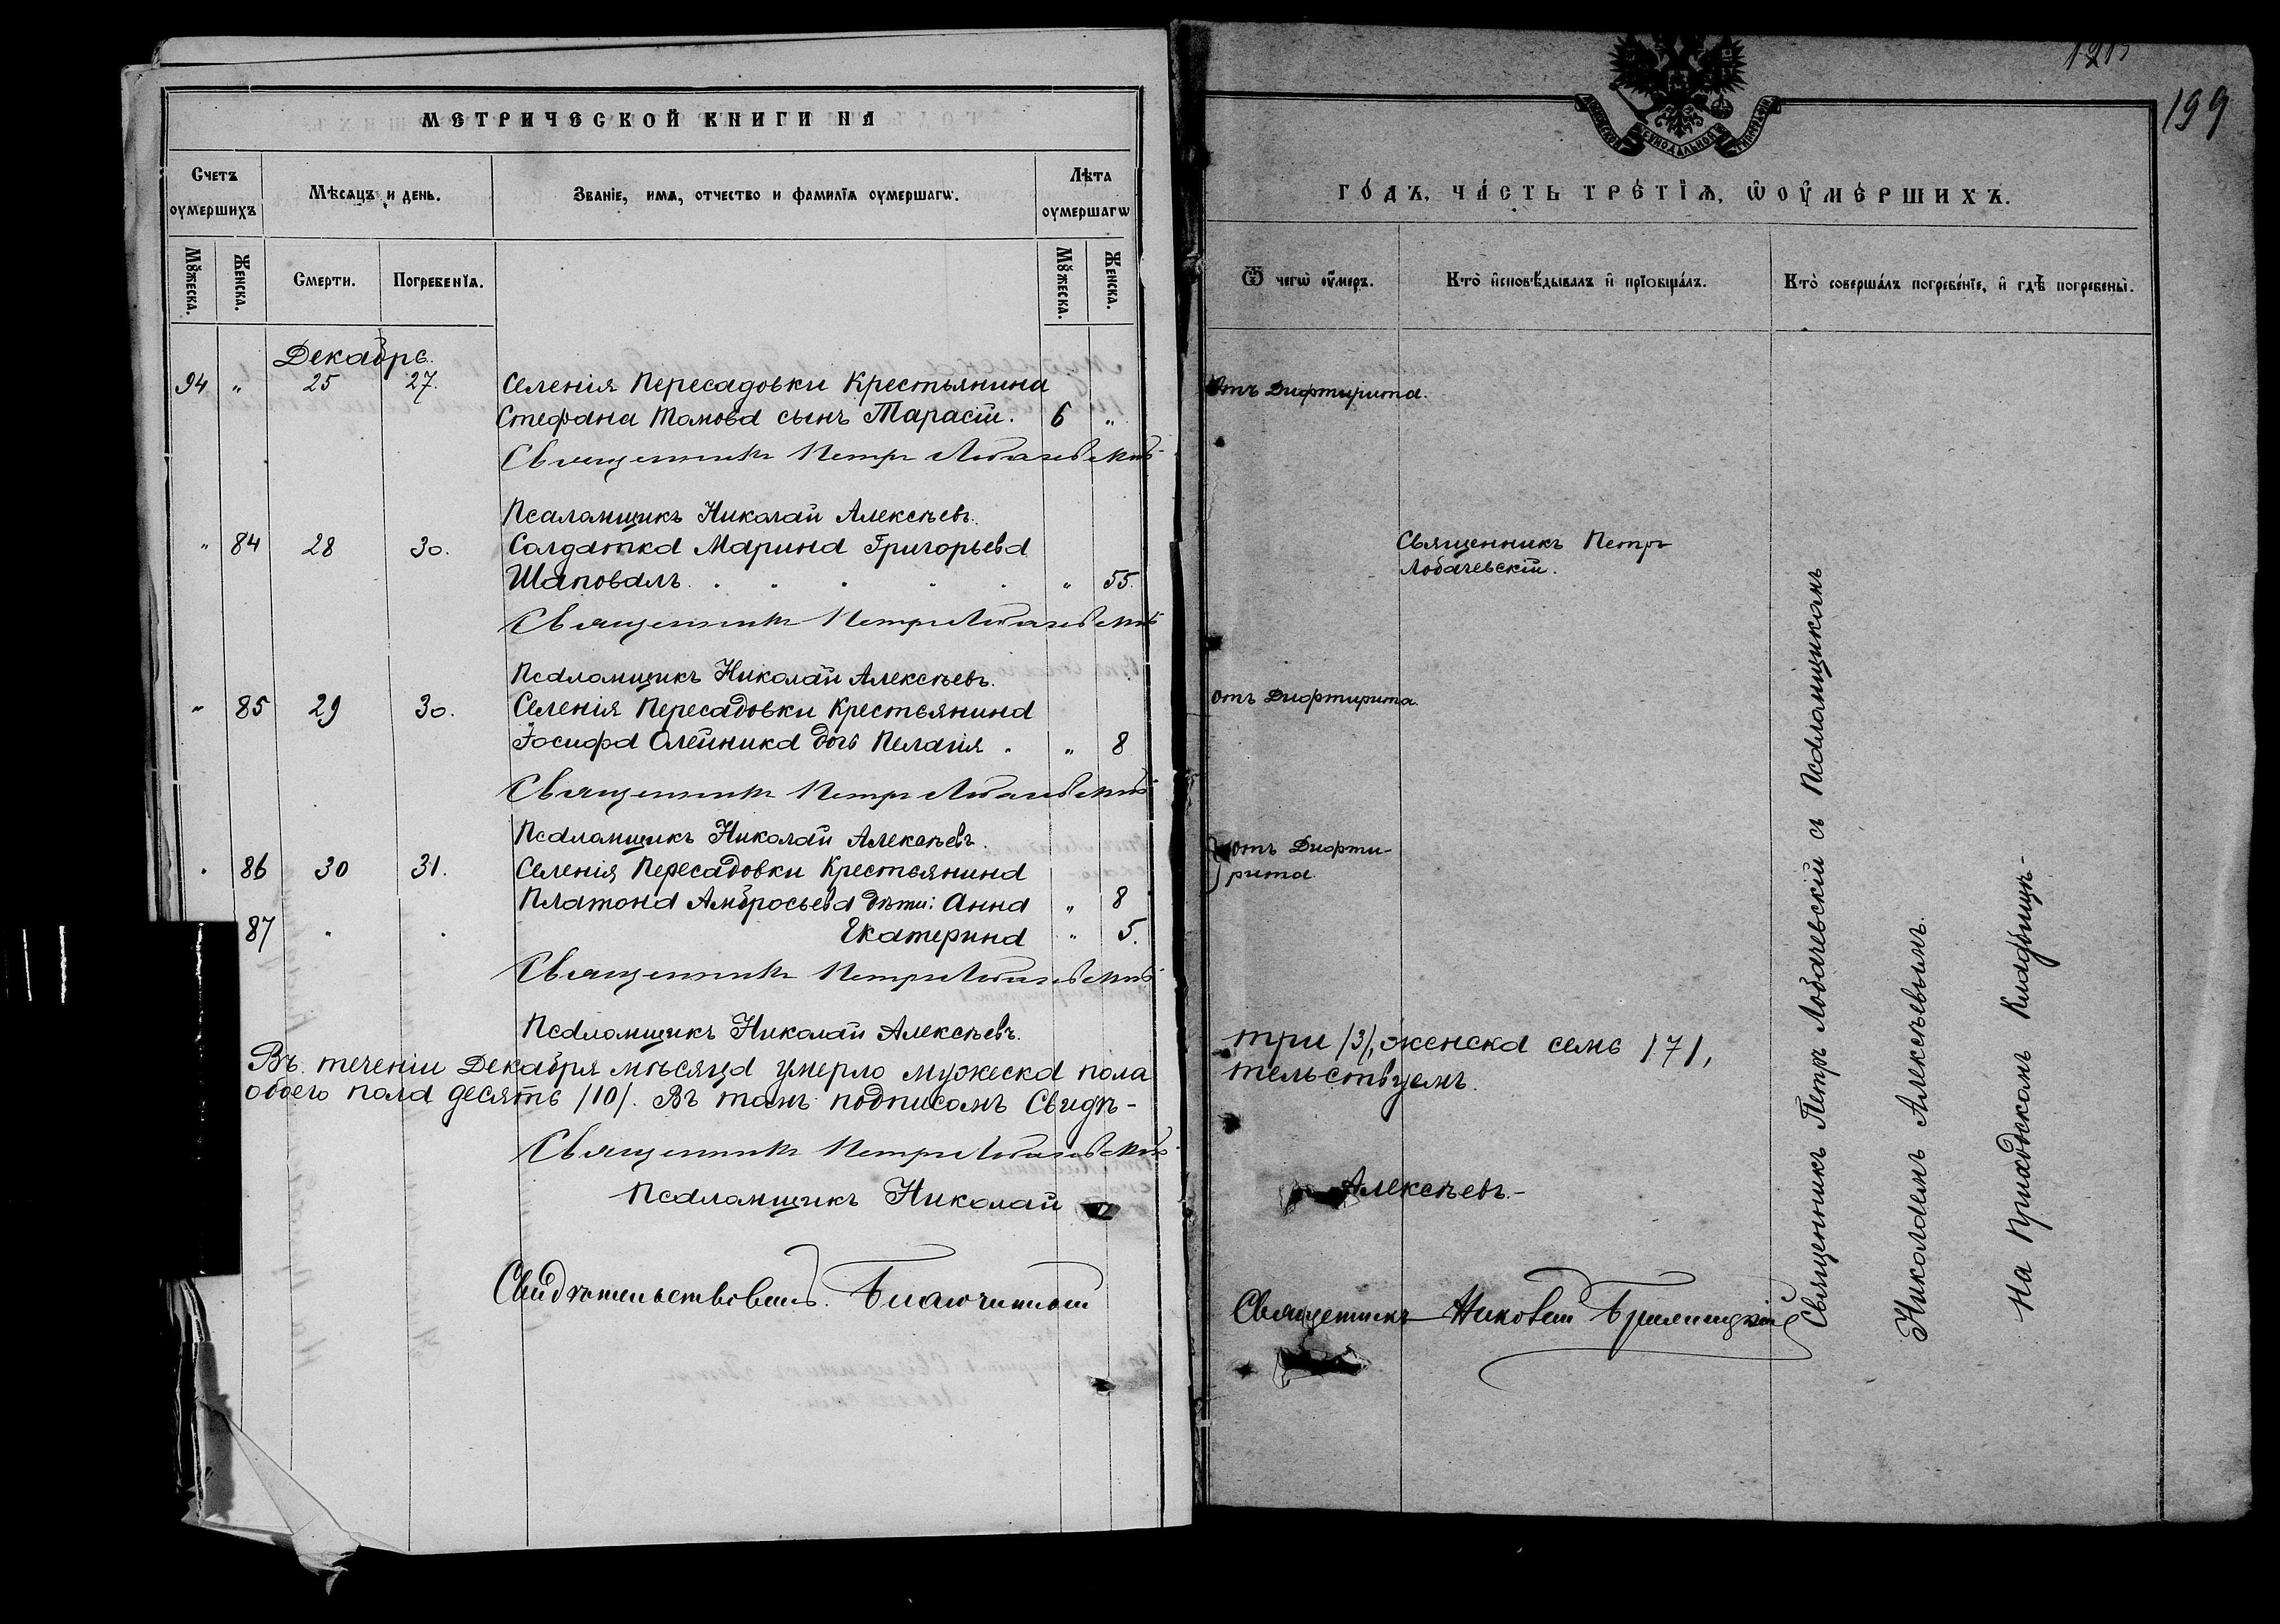 МЕТРИЧЕСКОЙ КНИГИ НА
Счетъ оумершихъ
Мѣсяцъ и день.
Званіе, имя, отчество и фамилїя оумершагѡ.
Лѣта оумершагѡ
Мꙋжеска.
Женска.
Смерти.
Погребенїя.
Мꙋжеска.
Женска.
Декабрь.
94 " 25 27. Селенія Пересадовки Крестьянина
Стефана Томова сынъ Тарасій. 6 "
Священникъ Петръ Лобачевскій
Псаломщикъ Николай Алексѣевъ.
" 84 28 30. Солдатка Марина Григорьева
Шаповалъ. " 55.
Священникъ Петръ Лобачевскій
Псаломщикъ Николай Алексѣевъ.
" 85 29 30. Селенія Пересадовки Крестьянина
Іосифа Олейника дочь Пелагія . " 8
Священникъ Петръ Лобачевскій
Псаломщикъ Николай Алексѣевъ.
. 86 30 31. Селенія Пересадовки Крестьянина
Платона Амбросьева дѣти: Анна " 8
87 " . Екатерина " 5.
Священникъ Петръ Лобачевскій
Псаломщикъ Николай Алексѣевъ.
Въ теченіи Декабря мѣсяца умерло мужеска пола
обоего пола десять /10/. Въ томъ подписомъ Свидѣ-
Священникъ Петръ Лобачевскій
Псаломщикъ Николай
Свидѣтельствовалъ. Благочинный
199
МОСКОВСКОЙ СѴНОДАЛЬНОЙ ТИПОГРАФІИ
ГО́ДЪ, ЧА́СТЬ ТРЕ́ТЇѦ, Ѡ ОУМЕ́РШИХЪ.
Ѿ чегѡ̀ оу́меръ.
Кто̀ и҆сповѣ́дывалъ и҆ прїѻбща́лъ.
Кто̀ соверша́лъ погребе́нїе, и҆ гдѣ̀ погребены̀.
Отъ Дифтирита.
Священникъ Петръ
Лобачевскій.
отъ Дифтирита.
отъ Дифти-
рита.
три /3/, женска семь /7/,
тельствуемъ.
Алексѣевъ.-
Священникъ
Священникъ Петръ Лобачевскій съ Псаломщикомъ
Николаемъ Алексѣевымъ.
На Приходскомъ Кладбищѣ.-